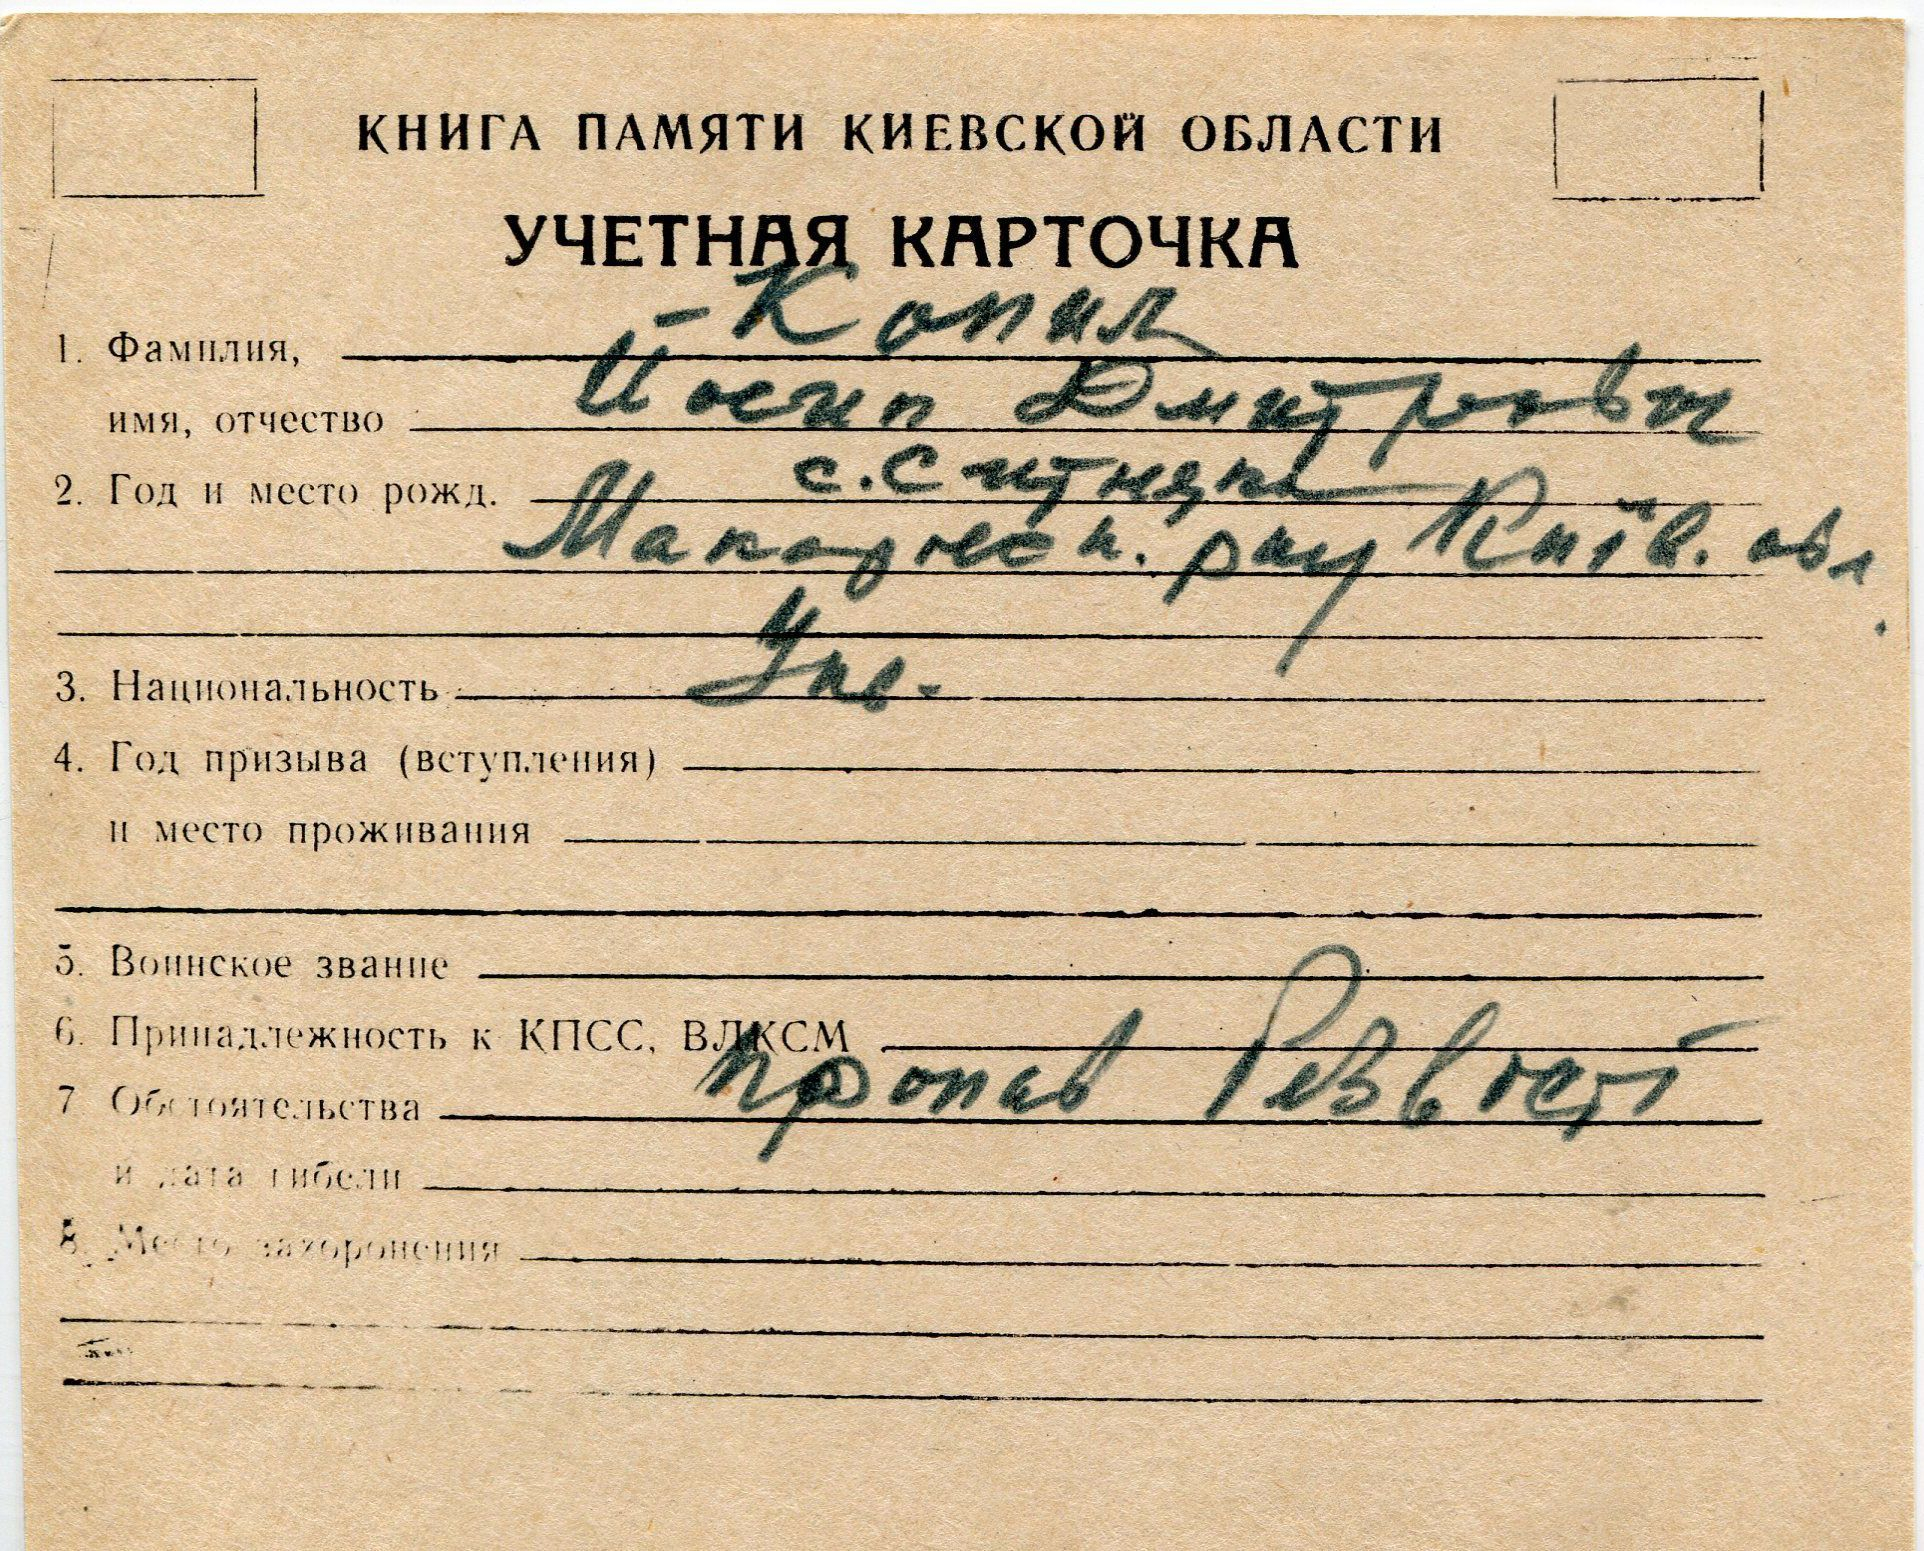 КНИГА ПАМЯТИ КИЕВСКОЙ ОБЛАСТИ
УЧЕТНАЯ КАРТОЧКА
1. Фамилия, Копил
имя, отчество Йосип Дмитрович
2. Год и место рожд. с. Ситняки
Макарівськ. р-ну Київ. обл.
3. Национальность Укр.
4. Год призыва (вступления)
и место проживания
5. Воинское звание
6. Принадлежность к КПСС, ВЛКСМ
7 Обстоятельства пропав без вісті
и дата гибели
8. Место захоронения